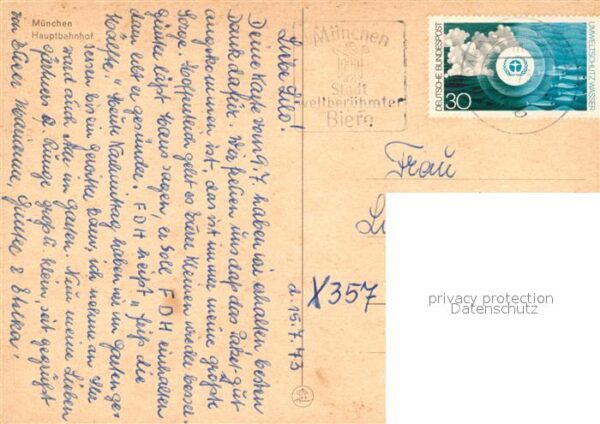 München
Hauptbahnhof
München
Stadt
weltberühmter
Biere
DEUTSCHE BUNDESPOST
30
UMWELTSCHUTZ: WASSER
Liebe Lilo!
Deine Karte vom 9.7. haben wir erhalten besten
Dank dafür. Wir freuen uns daß das Paket gut
angekommen ist, das ist immer meine größte
Sorge. Hoffentlich geht es Eurem Kleinen wieder besser.
Günter läßt Dann sagen, er soll FDH einhalten
dann lebt er gesünder. FDH heißt "friß die
Hälfte". Euren Nachmittag haben wir im Garten ge-
sessen bei ein Kann, ich nehme an Ihr
wart auch in Garten. Nun meine Lieben
gestern Ringe groß u. klein, seid gegrüßt
von Eurer Marianne, Günter &
d. 15.7.73
Frau
X357
privacy protection
Datenschutz